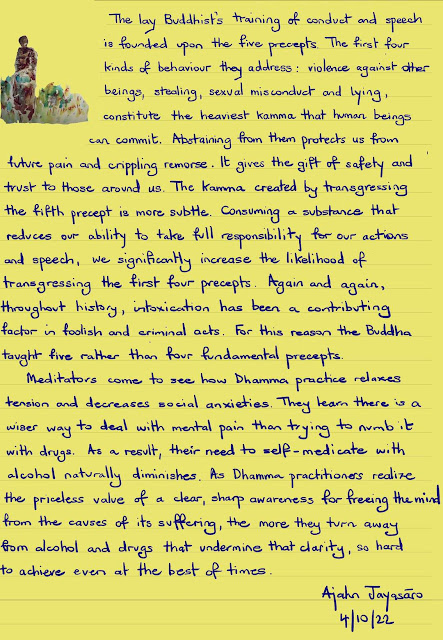 The lay Buddhist's training of conduct and speech
is founded upon the five precepts. The first four
kinds of behaviour they address: violence against other
beings, stealing, sexual misconduct and lying,
constitute the heaviest kamma that human beings
can commit. Abstaining from them protects us from
future pain and crippling remorse. It gives the gift of safety and
trust to those around us. The kamma created by transgressing
the fifth precept is more subtle. Consuming a substance that
reduces our ability to take full responsibility for our actions
and speech, we significantly increase the likelihood of
transgressing the first four precepts. Again and again,
throughout history, intoxication has been a contributing
factor in foolish and criminal acts. For this reason the Buddha
taught five rather than four fundamental precepts.
Meditators come to see how Dhamma practice relaxes
tension and decreases social anxieties. They learn there is a
wiser way to deal with mental pain than trying to numb it
with drugs. As a result, their need to self-medicate with
alcohol naturally diminishes. As Dhamma practitioners realize
the priceless value of a clear, sharp awareness for freeing the mind
from the causes of its suffering, the more they turn away
from alcohol and drugs that undermine that clarity, so hard
to achieve even at the best of times.
Ajahn Jayasāro
4/10/22